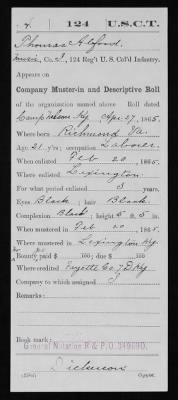 A. 124 U.S.C.T.
Thomas Alford.
Music, Co. I, 124 Reg't U. S. Col'd Infantry.
Appears on
Company Muster-in and Descriptive Roll
of the organization named above. Roll dated
Camp Nelson Ky Apr 27, 1865.
Where born Richmond Va.
Age 21 y'rs; occupation Laborer
When enlisted Feb 20, 1865.
Where enlisted Lexington
For what period enlisted 3 years.
Eyes Black; hair Black.
Complexion Black; height 5 ft. 5 in.
When mustered in Feb 20, 1865.
Where mustered in Lexington Ky
Bounty paid $ 100; due $ 100
Where credited Fayette Co 7 D Ky
Company to which assigned I
Remarks:
Book mark:
General Notation R & P.O.
Dickinson
Copyist.